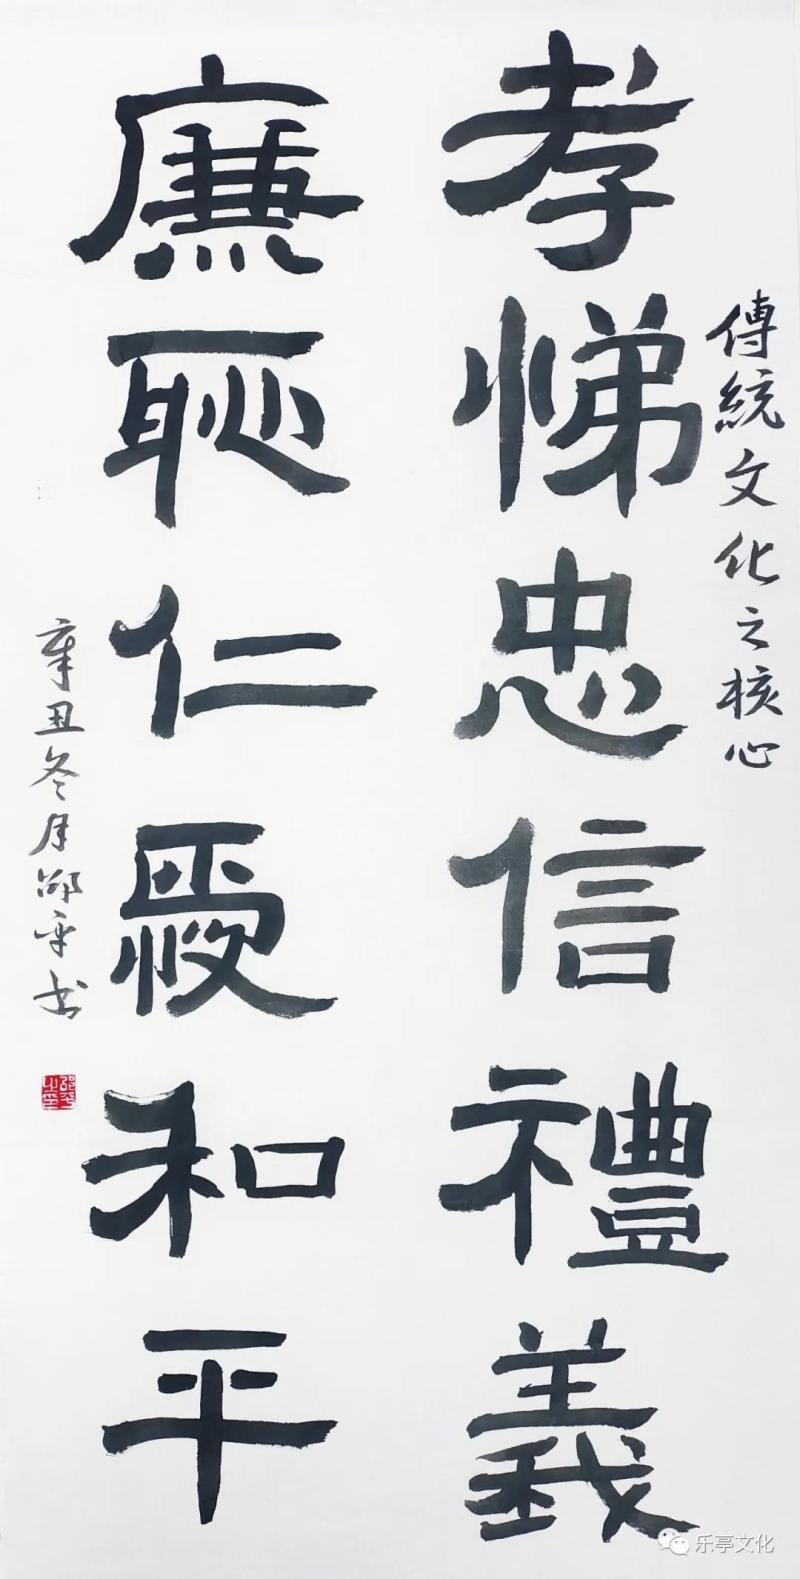 傳統文化之核心
孝悌忠信禮義
廉恥仁愛和平
辛丑冬月邵平书
邵平之印
乐亭文化